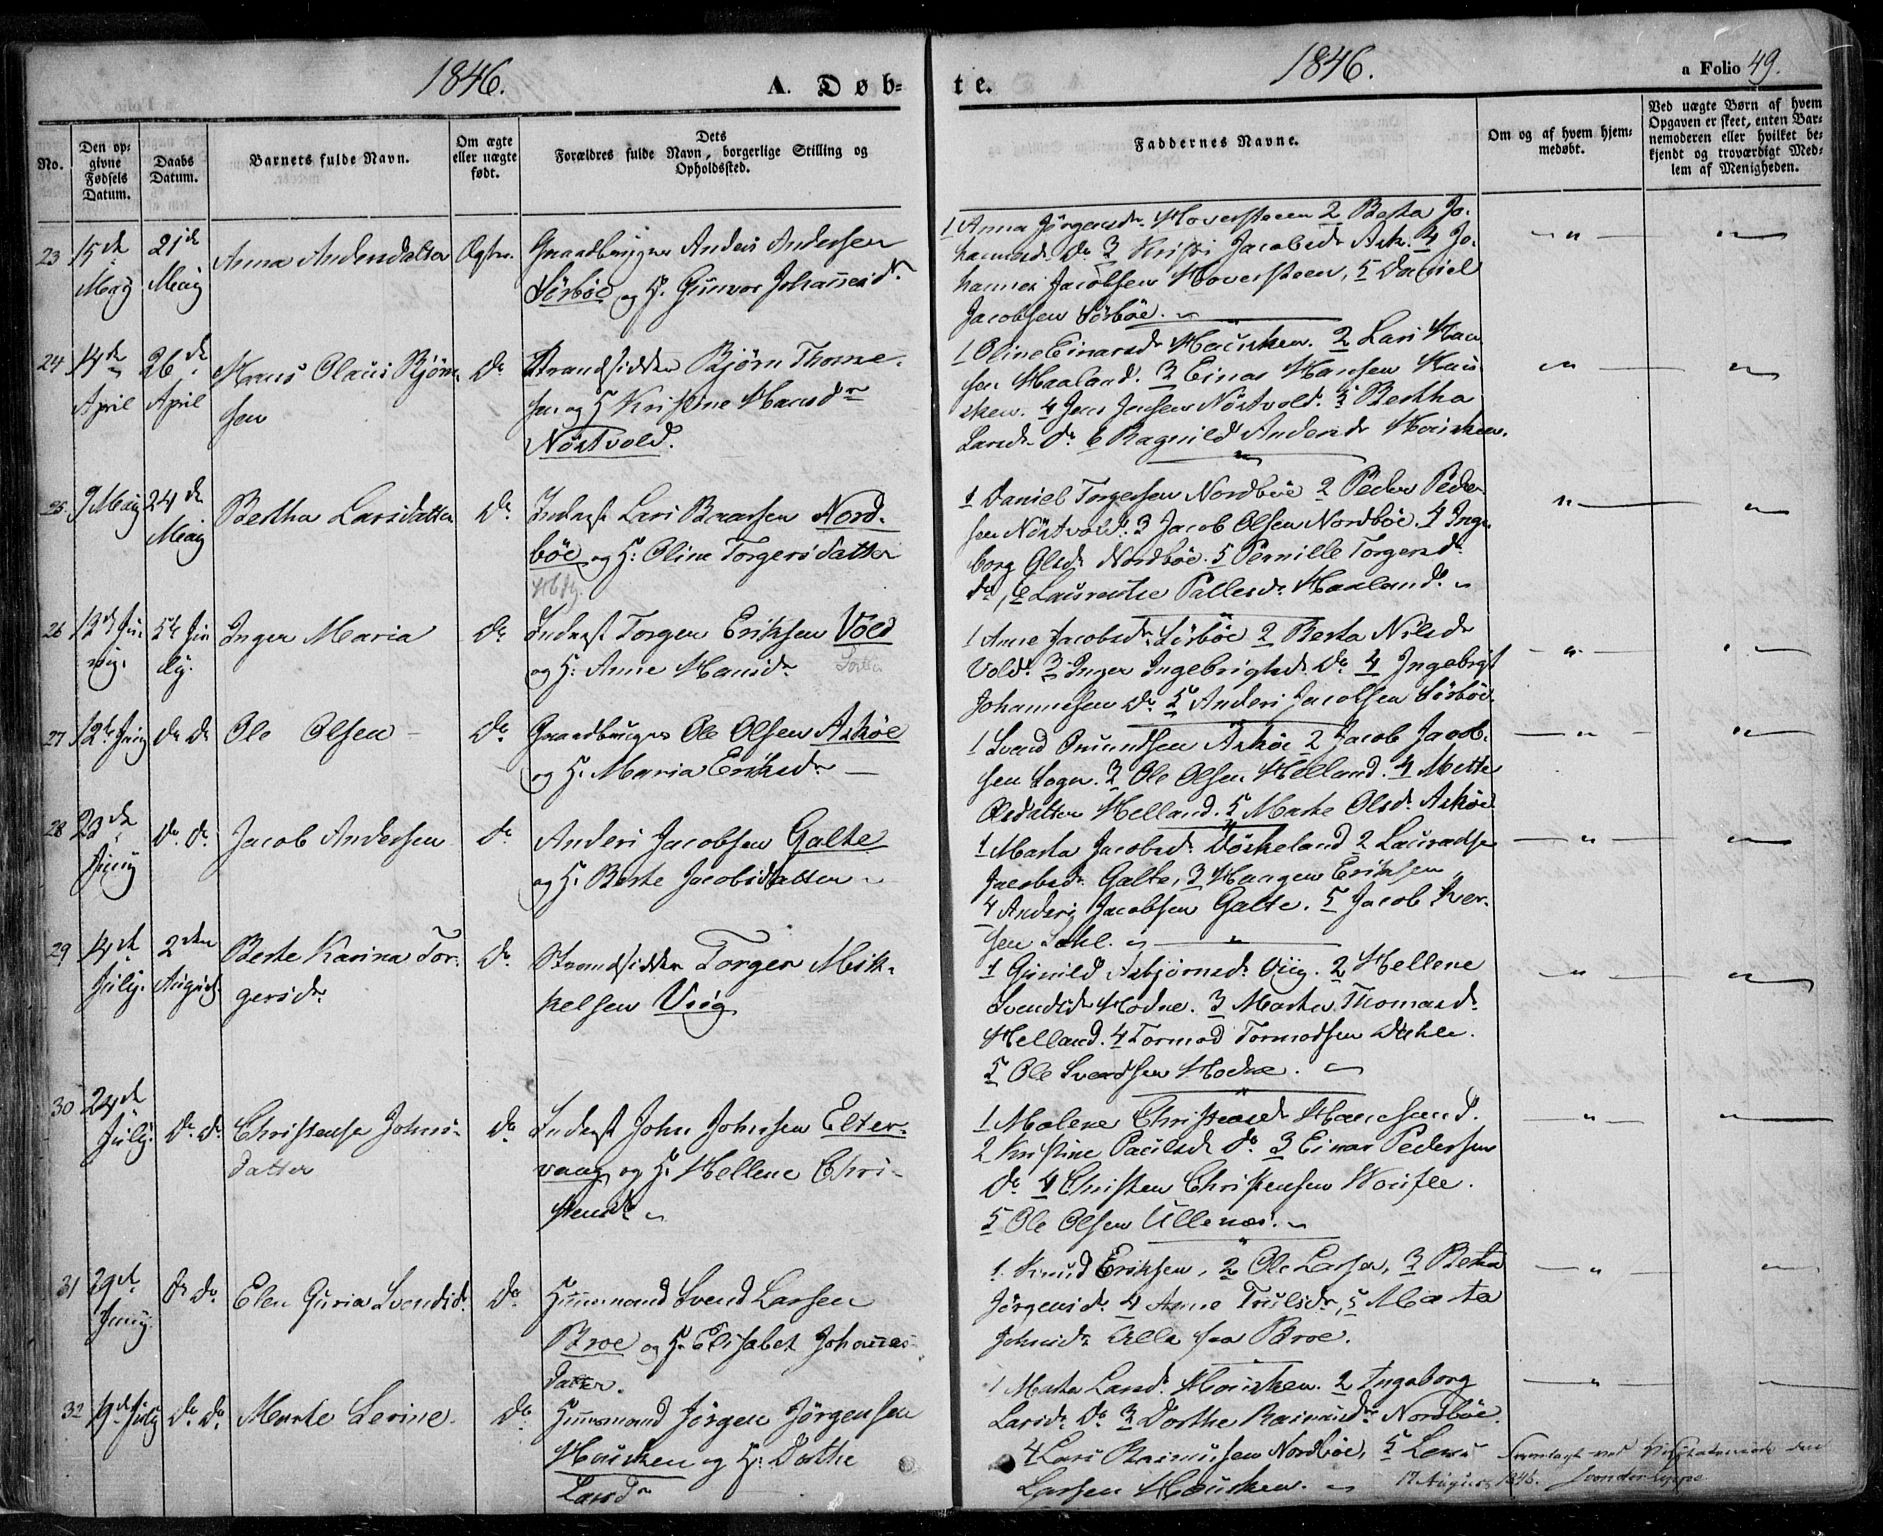 1846.
A. Døb=
te.
1846.
a Folio 49.
No.
Den op=
givne
Fødsels
Datum.
Daabs
Datum.
Barnets fulde Navn.
Om ægte
eller uægte
født.
Dets
Forældres fulde Navn, borgerlige Stilling og
Opholdssted.
Faddernes Navne.
Om og af hvem hjem=
medøbt.
Ved uægte Børn af hvem
Opgaven er skeet, enten Bar=
nemoderen eller hvilket be=
kjendt og troværdigt Med=
lem af Menigheden.
23
15de
May
21de
May
Anna Andersdatter
Ægte
Gaardbruger Anders Andersen
Sörböe og H. Gunvor Johannesdr
1 Anna Jörgensdr Hoversteen 2 Berta Jo-
hannesdr Do 3 Kristi Jacobsdr Ask. 4 Jo-
hannes Jacobsen Hoversteen, 5 Daniel
Jacobsen Sörböe.
24
14de
April
26de
April
Hans Olaus Björn-
sen
Do
Strandsidder Björn Thome-
sen og H Kristine Hansdr
Nöstvold.
1 Oline Einarsdr Hausken. 2 Lars Han-
sen Haaland. 3 Einar Hansen Haus-
ken. 4 Jens Jensen Nöstvold. 5 Bertha
Larsdr Do 6 Ragnild Andersdr Hausken.
25
9 May
24de
May
Bertha Larsdatter
Do
Inderst Lars Baarsen Nord-
böe og H: Oline Torgersdatter
1 Daniel Torgersen Nordböe 2 Peder Peder-
sen Nöstvold. 3 Jacob Olsen Nordböe. 4 Inge-
borg Olsdr Nordböe. 5 Pernille Torgersdr
Do, 6 Laurentse Pallesdr Haaland.
26
12de Ju-
ny.
5te Ju-
ly.
Inger Maria
Do
Inderst Torger Eriksen Vold
og H: Anne Hansdr
1 Anne Jacobsdr Sörböe 2 Berta Nilsdr
Vold. 3 Inger Ingebrigtsdr Do 4 Ingebrigt
Johannesen Do 5 Anders Jacobsen Sörböe.
27
12te Juny
Do Do
Ole Olsen
Do
Gaardbruger Ole Olsen Asköe
og H. Maria Eriksdr
1 Svend Omundsen Asköe 2 Jacob Jacob-
sen Sogn. 3 Ole Olsen Helland. 4 Mette
Olsdatter Helland. 5 Marte Olsdr Asköe
28
23de
Juny
Do Do
Jacob Andersen
Do
Anders Jacobsen Galte
og H. Berte Jacobsdatter
1 Marta Jacobsdr Döskeland 2 Lauradse
Jacobsdr Galte, 3 Haagen Eriksen
4 Anders Jacobsen Galte. 5 Jacob Iver-
sen Dahl.
29
14de
July.
2den
August
Berte Karina Tor-
gersdr
Do
Strandsidder Torger Mik-
kelsen Viig
1 Gunild Asbjörnsdr Viig. 2 Hellene
Svendsdr Hodne. 3 Marta Thomasdr
Helland. 4 Tormod Tormodsen Dahle.
5 Ole Svendsen Hodne.
30
24de
July.
Do Do
Christense Johns-
datter
Do
Inderst John Johnsen Elter-
vaag og H. Hellene Chri-
stensdr
1 Malene Christensdr Hanesand.
2 Kristine Paulsdr Do 3 Einar Pedersen
Do 4 Christen Christensen
5 Ole Olsen Ullenæs.
31
29de
Juny.
Do Do
Elen Guria Svendsdr
Do
Huusmand Svend Larsen
Broe og H. Elisabet Johannes-
datter.
1. Knud Eriksen, 2 Ole Larsen, 3 Berta
Jörgensdr 4 Anne Trulsdr, 5 Marta
Johnsdr Alle paa Broe.
32
19de July
Do Do
Marte Serine.
Do
Huusmand Jörgen Jörgensen
Hausken og H: Dorthe
Larsdr
1 Marta Larsdr Hausken. 2 Ingeborg
Larsdr Do 3 Dorthe Rasmusdr Nordböe.
4 Lars Rasmussen Nordböe, 5 Lars
Larsen Hausken.
Fremlagt ved Visitatsen den
17 August 1846. von der Lippe